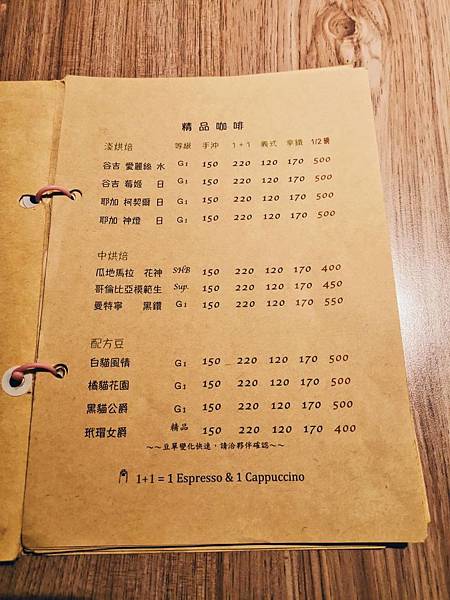 精品咖啡
淺烘焙 等級 手沖 1+1 義式 拿鐵 1/2磅
谷吉 愛麗絲 水 G1 150 220 120 170 500
谷吉 莓姬 日 G1 150 220 120 170 500
耶加 柯契爾 日 G1 150 220 120 170 500
耶加 神燈 日 G1 150 220 120 170 500
中烘焙
瓜地馬拉 花神 SHB 150 220 120 170 400
哥倫比亞模範生 Sup. 150 220 120 170 450
曼特寧 黑鑽 G1 150 220 120 170 550
配方豆
白貓風情 G1 150 220 120 170 500
橘貓花園 G1 150 220 120 170 500
黑貓公爵 G1 150 220 120 170 500
玳瑁女爵 精品 150 220 120 170 400
~~豆單變化快速,請洽夥伴確認~~
1+1 = 1 Espresso & 1 Cappuccino